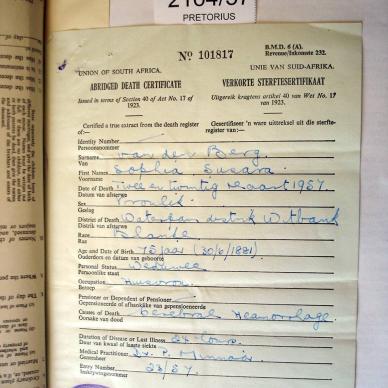 2164/57
PRETORIUS
No 101817
B.M.D. 6 (A).
Revenue/Inkomste 232.
UNION OF SOUTH AFRICA. UNIE VAN SUID-AFRIKA.
ABRIDGED DEATH CERTIFICATE VERKORTE STERFTESERTIFIKAAT
Issued in terms of Section 40 of Act No. 17 of 1923. Uitgereik kragtens artikel 40 van Wet No. 17 van 1923.
Certified a true extract from the death register of:— Gesertifiseer 'n ware uittreksel uit die sterfteregister van:—
Identity Number
Persoonsnommer
Surname van den Berg.
Van
First Names Sophia Susara
Voorname
Date of Death Twee en twintig Maart 1957.
Datum van afsterwe
Sex Vroulik
Geslag
District of Death distrik Witbank
Distrik van afsterwe
Race Blanke
Ras
Age and Date of Birth 75 jaar (30/6/1881)
Ouderdom en datum van geboorte
Personal Status Weduwee
Persoonlike staat
Occupation Huisvrou
Beroep
Pensioner or Dependent of Pensioner
Gepensioeneerde of afhanklike van gepensioeneerde
Causes of Death Cerebral Haemorrhage.
Oorsake van dood
Duration of Disease or Last Illness 24 hours.
Duur van kwaal of laaste siekte
Medical Practitioner Dr. P. Minnaar
Geneesheer
Entry Number 23/57.
Inskrywingsnommer